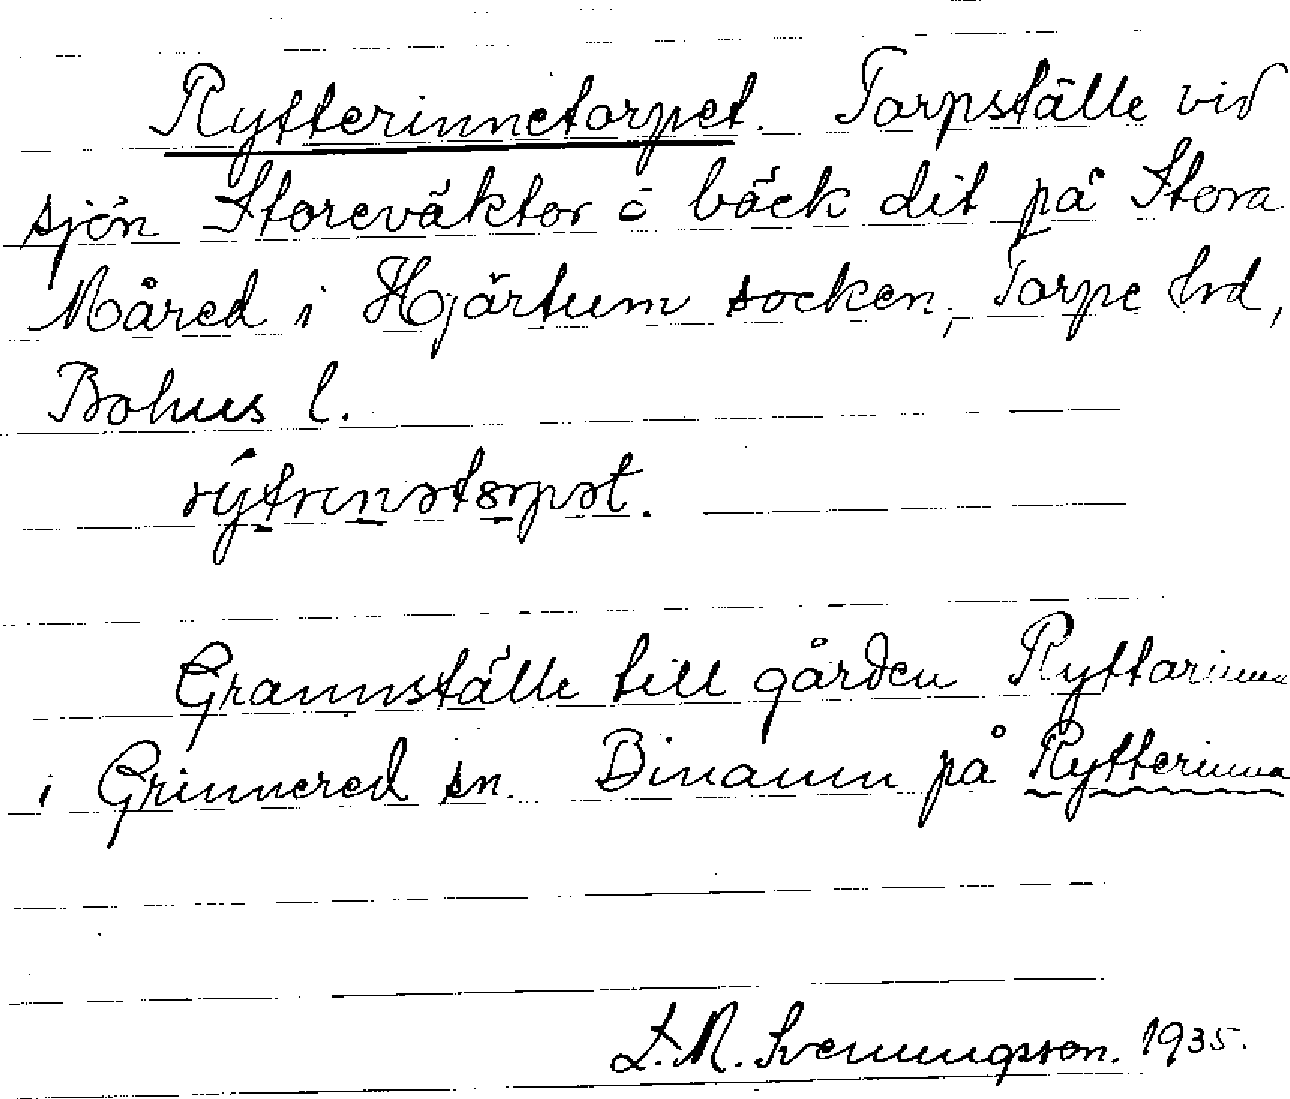 Rytterinnetorpet. Torpställe vid
sjön Storeväktor o bäck dit på Stora
Måred i Hjärtum socken, Torpe hd,
Bohus l.
rýtrenətorpət.
Grannställe till gården Ryttarinna
i Grinnered sn. Binamn på Rytterinna
L. M. Svenungsson. 1935.